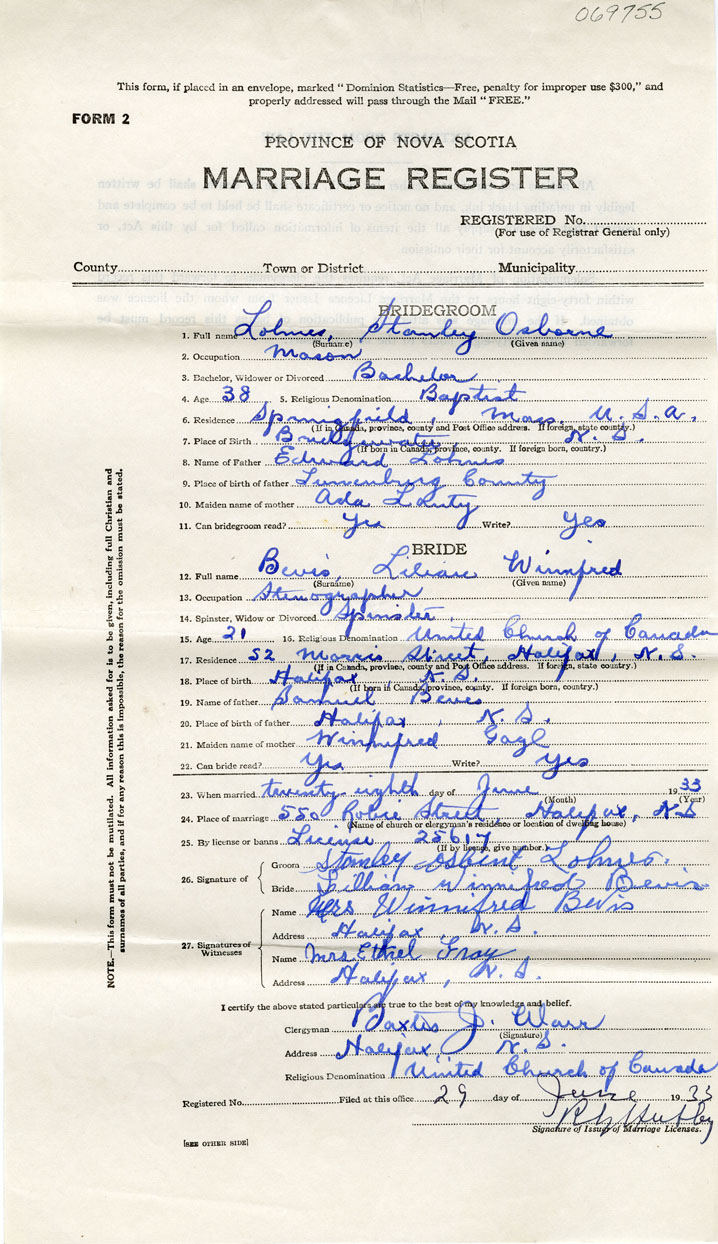 069755
This form, if placed in an envelope, marked " Dominion Statistics—Free, penalty for improper use $300," and
properly addressed will pass through the Mail " FREE."
FORM 2
PROVINCE OF NOVA SCOTIA
MARRIAGE REGISTER
REGISTERED No.
(For use of Registrar General only)
County Town or District Municipality
BRIDEGROOM
1. Full name Lohnes, Stanley Osborne
(Surname) (Given name)
2. Occupation Mason
3. Bachelor, Widower or Divorced Bachelor
4. Age 38 5. Religious Denomination Baptist
6. Residence Springfield, Mass. U.S.A.
(If in Canada, province, county and Post Office address. If foreign, state country.)
7. Place of Birth Bridgewater, N.S.
(If born in Canada, province, county. If foreign born, country.)
8. Name of Father Edward Lohnes
9. Place of birth of father Lunenburg County
10. Maiden name of mother Ada
11. Can bridegroom read? Yes Write? Yes
BRIDE
12. Full name Bevis, Lilian Winnifred
(Surname) (Given name)
13. Occupation Stenographer
14. Spinster, Widow or Divorced Spinster
15. Age 21 16. Religious Denomination United Church of Canada
17. Residence 52 Morris Street, Halifax, N.S.
(If in Canada, province, county and Post Office address. If foreign, state country.)
18. Place of birth Halifax, N.S.
(If born in Canada, province, county. If foreign born, country.)
19. Name of father Samuel Bevis
20. Place of birth of father Halifax, N.S.
21. Maiden name of mother Winnifred
22. Can bride read? Yes Write? Yes
23. When married twenty-eighth day of June 1933
(Month) (Year)
24. Place of marriage 550 Robie Street, Halifax, N.S
(Name of church or clergyman's residence or location of dwelling house)
25. By license or banns License 25617
(If by licence, give number.)
26. Signature of Groom Stanley Lohnes.
Bride Lillian Winnifred Bevis
27. Signatures of Witnesses Name Mrs Winnifred Bevis
Address Halifax, N.S.
Name Mrs Ethel
Address Halifax, N.S.
I certify the above stated particulars are true to the best of my knowledge and belief.
Clergyman J.
(Signature)
Address Halifax, N.S.
Religious Denomination United Church of Canada
Registered No. Filed at this office 29 day of June 1933
Signature of Issuer of Marriage Licenses.
[SEE OTHER SIDE]
NOTE.—This form must not be mutilated. All information asked for is to be given, including full Christian and
surnames of all parties, and if for any reason this is impossible, the reason for the omission must be stated.